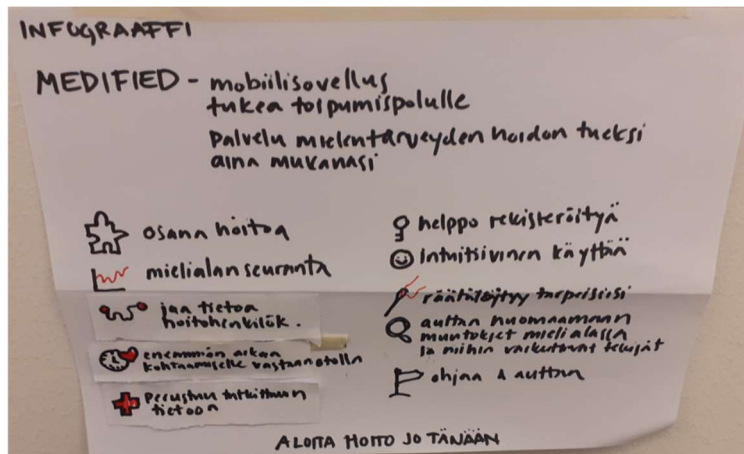 INFOGRAAFFI
MEDIFIED - mobiilisovellus
tukea toipumispolulle
Palvelu mielenterveyden hoidon tueksi
aina mukanasi
osana hoitoa
mielialan seuranta
jaa tietoa
hoitohenkilök.
enemmän aikaa
kohtaamiselle vastaanotolla
Perustuu tutkittuun
tietoon
helppo rekisteröityä
Intuitiivinen käyttää
räätälöityy tarpeisiisi
auttaa huomaamaan
muutokset mielialassa
ja niihin vaikuttavat tekijät
ohjaa & auttaa
ALOITA HOITO JO TÄNÄÄN